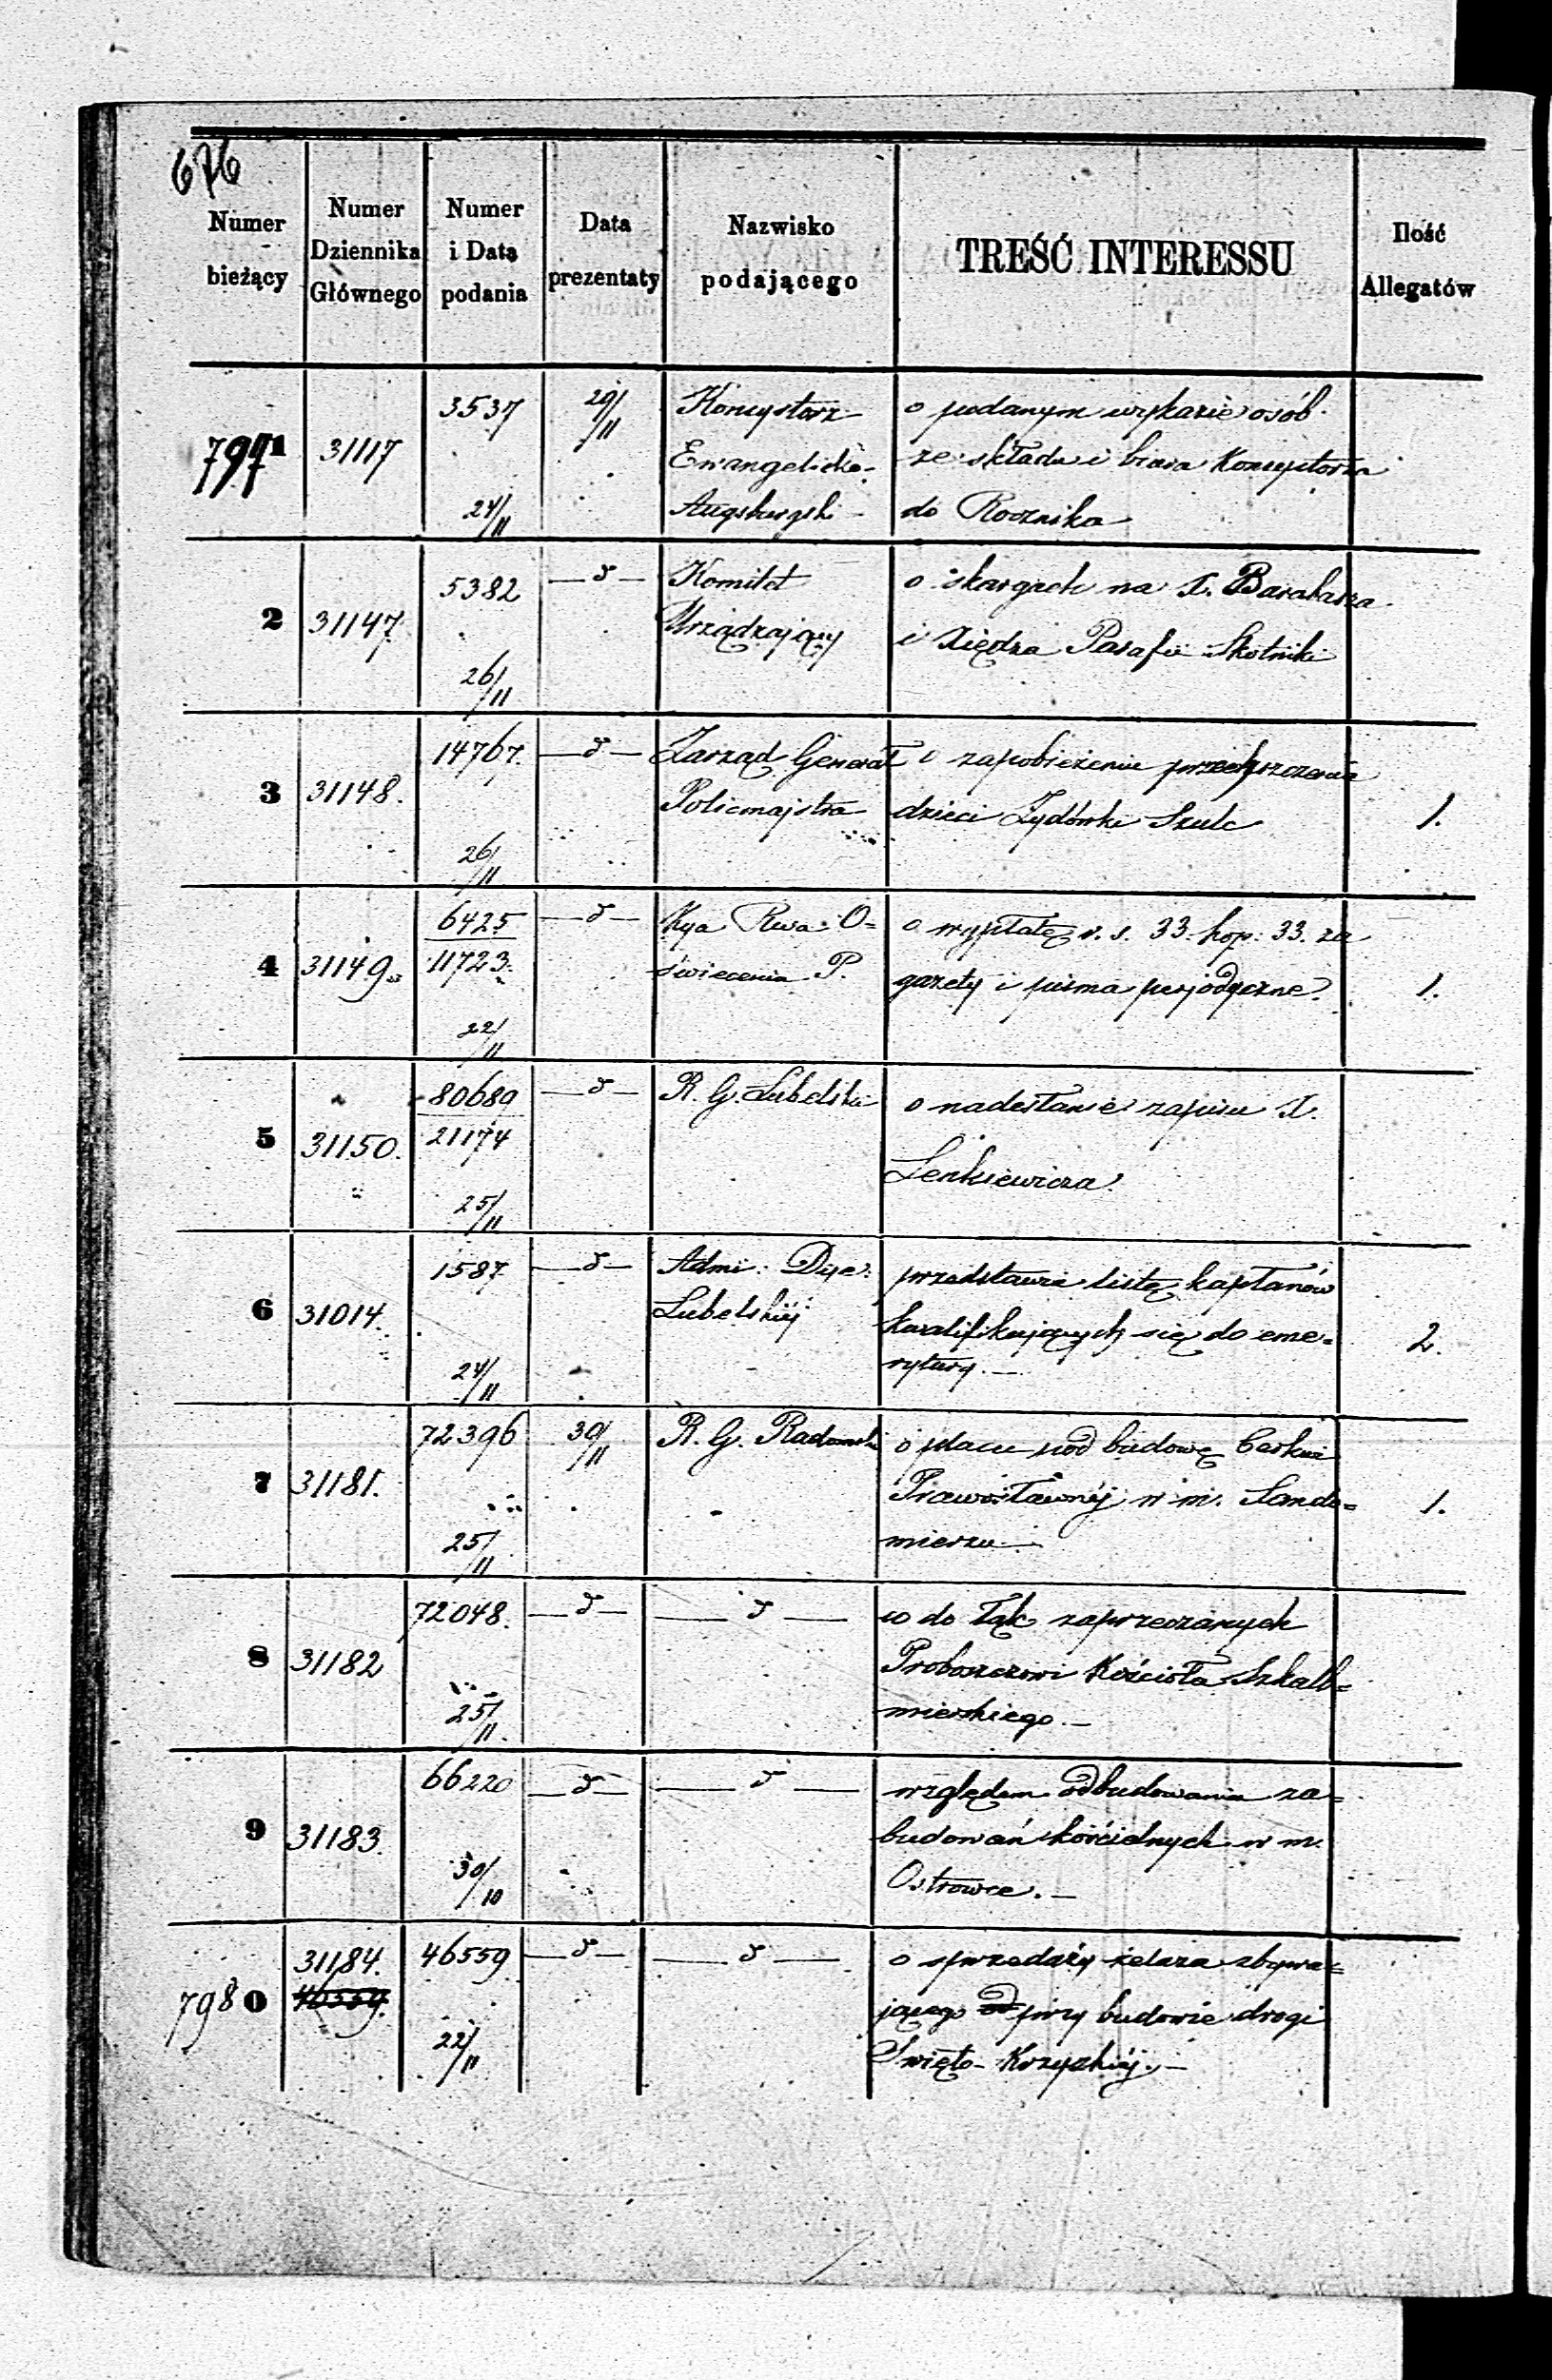 676
Numer bieżący
Numer Dziennika Głównego
Numer i Data podania
Data prezentaty
Nazwisko podającego
TREŚĆ INTERESSU
Ilość Allegatów
7971 31117 3537 29/11 Konsystorz o podanym wykazie osób
Ewangelicko- ze składu i biura Konsystorza
24/11 Augsburgski do Rocznika
5382 — d — Komitet o skargach na X. Barabasza
2 31147 Urządzający i Xiędza Parafii Skotniki
26/11
14767. — d — Zarząd Generał o zapobieżenie przechrzczenia
3 31148. Policmajstra dzieci Żydówki Szulc 1.
26/11
6425 — d — Kya Rwa: O= o wypłatę r. s. 33. kop: 33. za
4 31149 11723. świecenia P. gazety i pisma perjodyczne. 1.
22/11
80689 — d — R. G. Lubelski o nadesłanie zapisu X.
5 31150. 21174 Lenkiewicza
25/11
1587 — d — Admi: Dye: przedstawia listę kapłanów
6 31014. Lubelskiéj kwalifikujących się do eme= 2.
24/11 rytury. —
72396 30/11 R. G. Radomski o placu pod budowę Cerkwi
7 31181. Prawosławnéj w m. Sando= 1.
25/11 mierzu —
72048. — d — — d — co do łąk zaprzeczanych
8 31182 Proboszczowi Kościoła Szkalb=
25/11. mierskiego. —
66220 — d — — d — względem odbudowania za=
9 31183. budowań kościelnych w m.
30/10 Ostrowce. —
31184. 46559 — d — — d — o sprzedaży żelaza zbywa=
7980 46559. jącego od przy budowie drogi
22/11 Święto-Krzyzkiéj. —